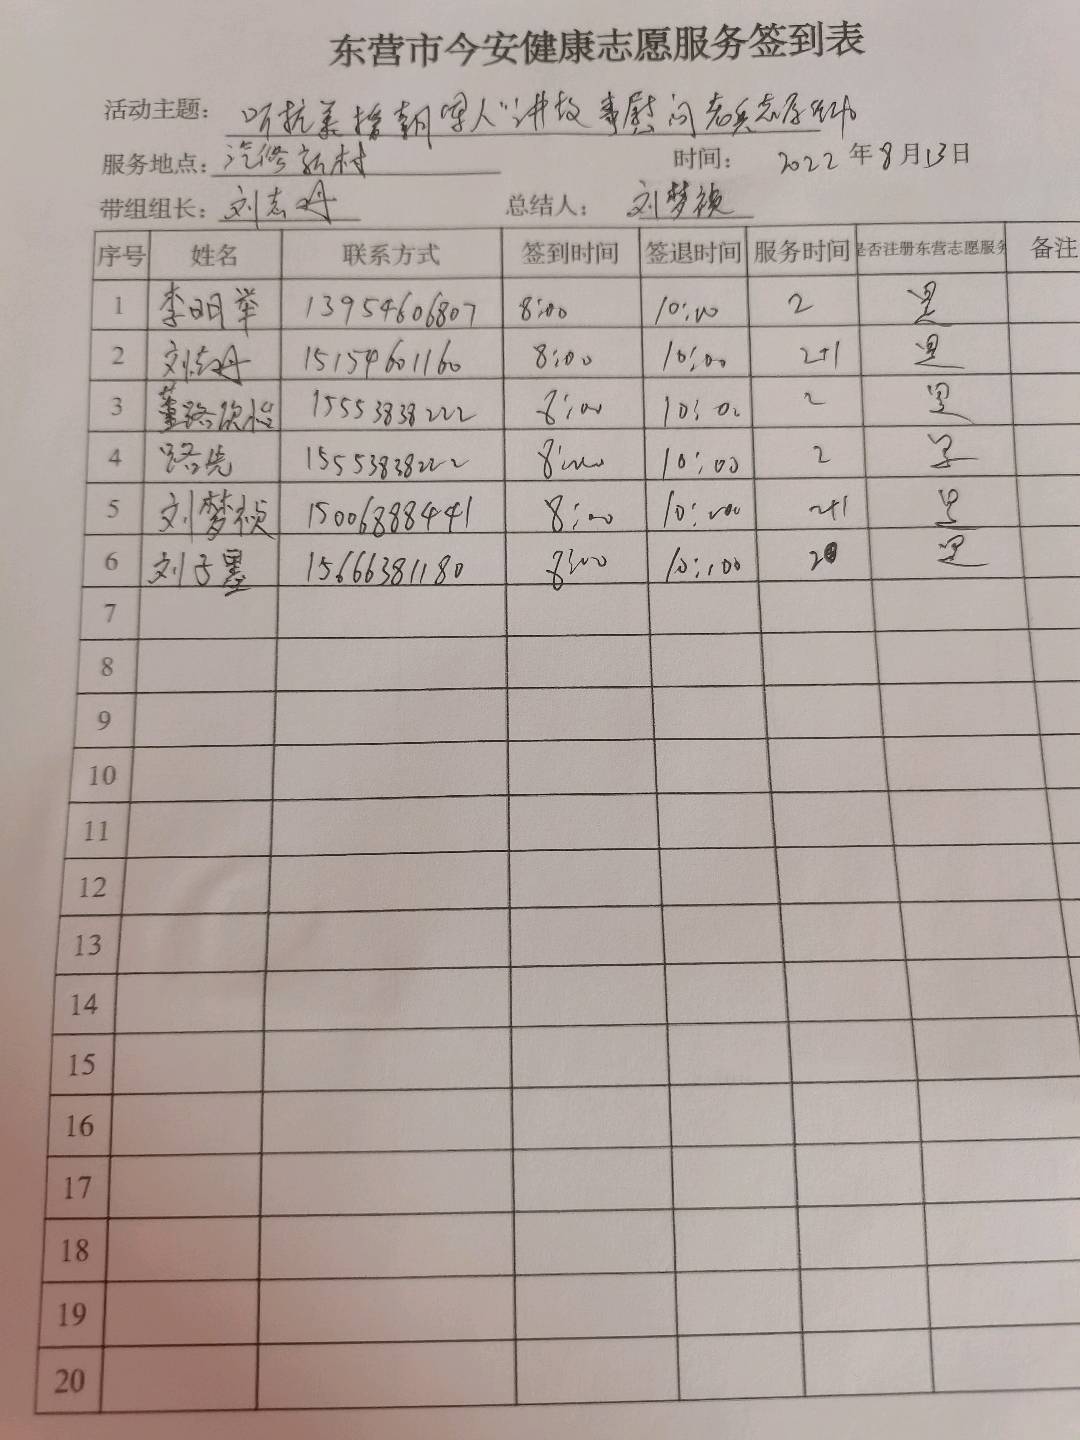 东营市今安健康志愿服务签到表
活动主题： 听抗美援朝军人"讲故事慰问老兵志愿活动
服务地点： 汽修新村 时间： 2022年8月13日
带组组长： 刘志丹 总结人： 刘梦祯
序号 姓名 联系方式 签到时间 签退时间 服务时间 是否注册东营志愿服务 备注
1 李明举 13954606807 8:00 10:00 2 是
2 刘志丹 15154601160 8:00 10:00 2+1 是
3 董路欣怡 15553838222 8:00 10:00 2 是
4 路 15553838222 8:00 10:00 2 是
5 刘梦祯 15006888441 8:00 10:00 2+1 是
6 刘子墨 15666381180 8:00 10:00 2 是
7
8
9
10
11
12
13
14
15
16
17
18
19
20